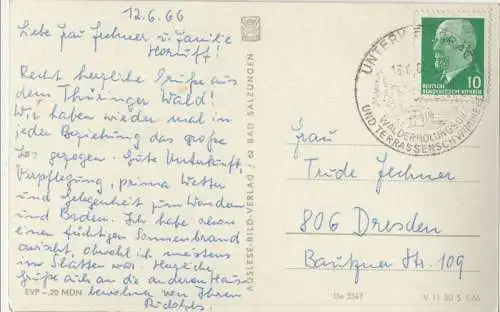 12.6.66
Liebe Frau Jechner u. Familie
Recht herzliche Grüße aus
dem Thüringer Wald!
Wir haben wieder mal in
jeder Beziehung das große
Los gezogen. Gute Unterkunft,
Verpflegung, prima Wetter
und Gelegenheit zum Wandern
und Baden. Ich habe schon
einen tüchtigen Sonnenbrand
erwischt, obwohl ich meistens
im Schatten war. Herzliche
Grüße auch an die anderen Haus-
bewohner von Ihren
EVP -,20 MDN
AUSLESE-BILD-VERLAG / Q BAD SALZUNGEN
WALDERHOLUNGS
UND TERRASSENSCHWIMM
10
DEUTSCHE
DEMOKRATISCHE REPUBLIK
Frau
Trude Jechner
806 Dresden
Bautzner Str. 109
V 11 50 S 1/66